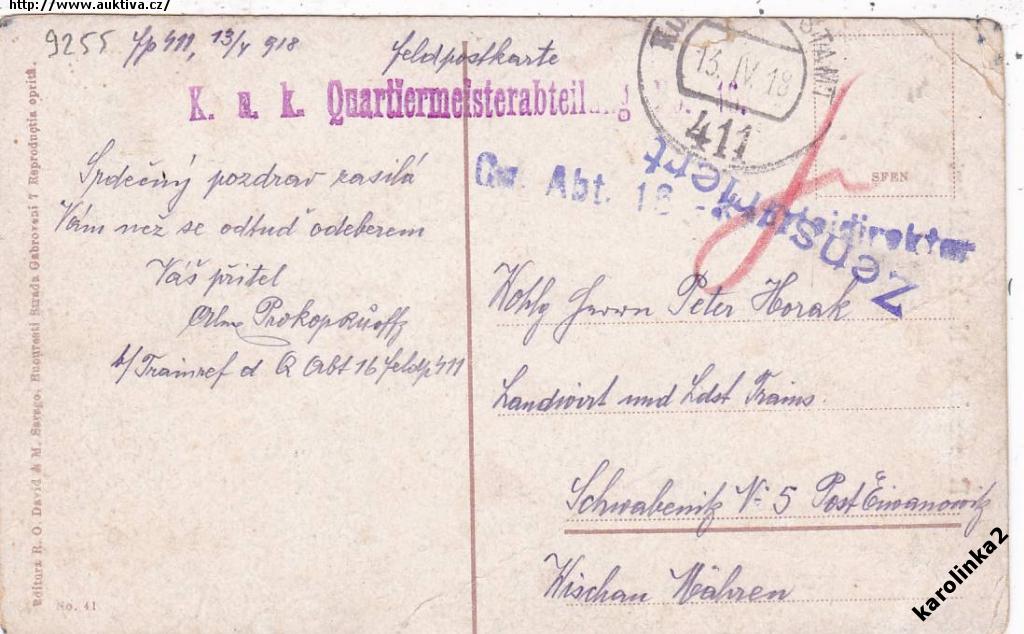 http://www.auktiva.cz/
9255
Fp 411, 13/V 918
Feldpostkarte
K. u. k. Quartiermeisterabteilung
13. IV. 18
411
Qu. Abt. 16
Zensuriert
SFEN
Srdečný pozdrav zasílá
Vám než se odtud odeberem
Váš přítel
Prokop
b/ Trainref d Q Abt 16 Feldp 411
Wohlg Herrn Peter Horak
Landwirt und Ldst Trains
Schwabenitz No 5 Post Eiwanowitz
Wischau Mähren
Editura R. O. David & M. Saraga, Bucuresti Strada Gabroveni 7 Reproductia oprită.
No. 41
karolinka2